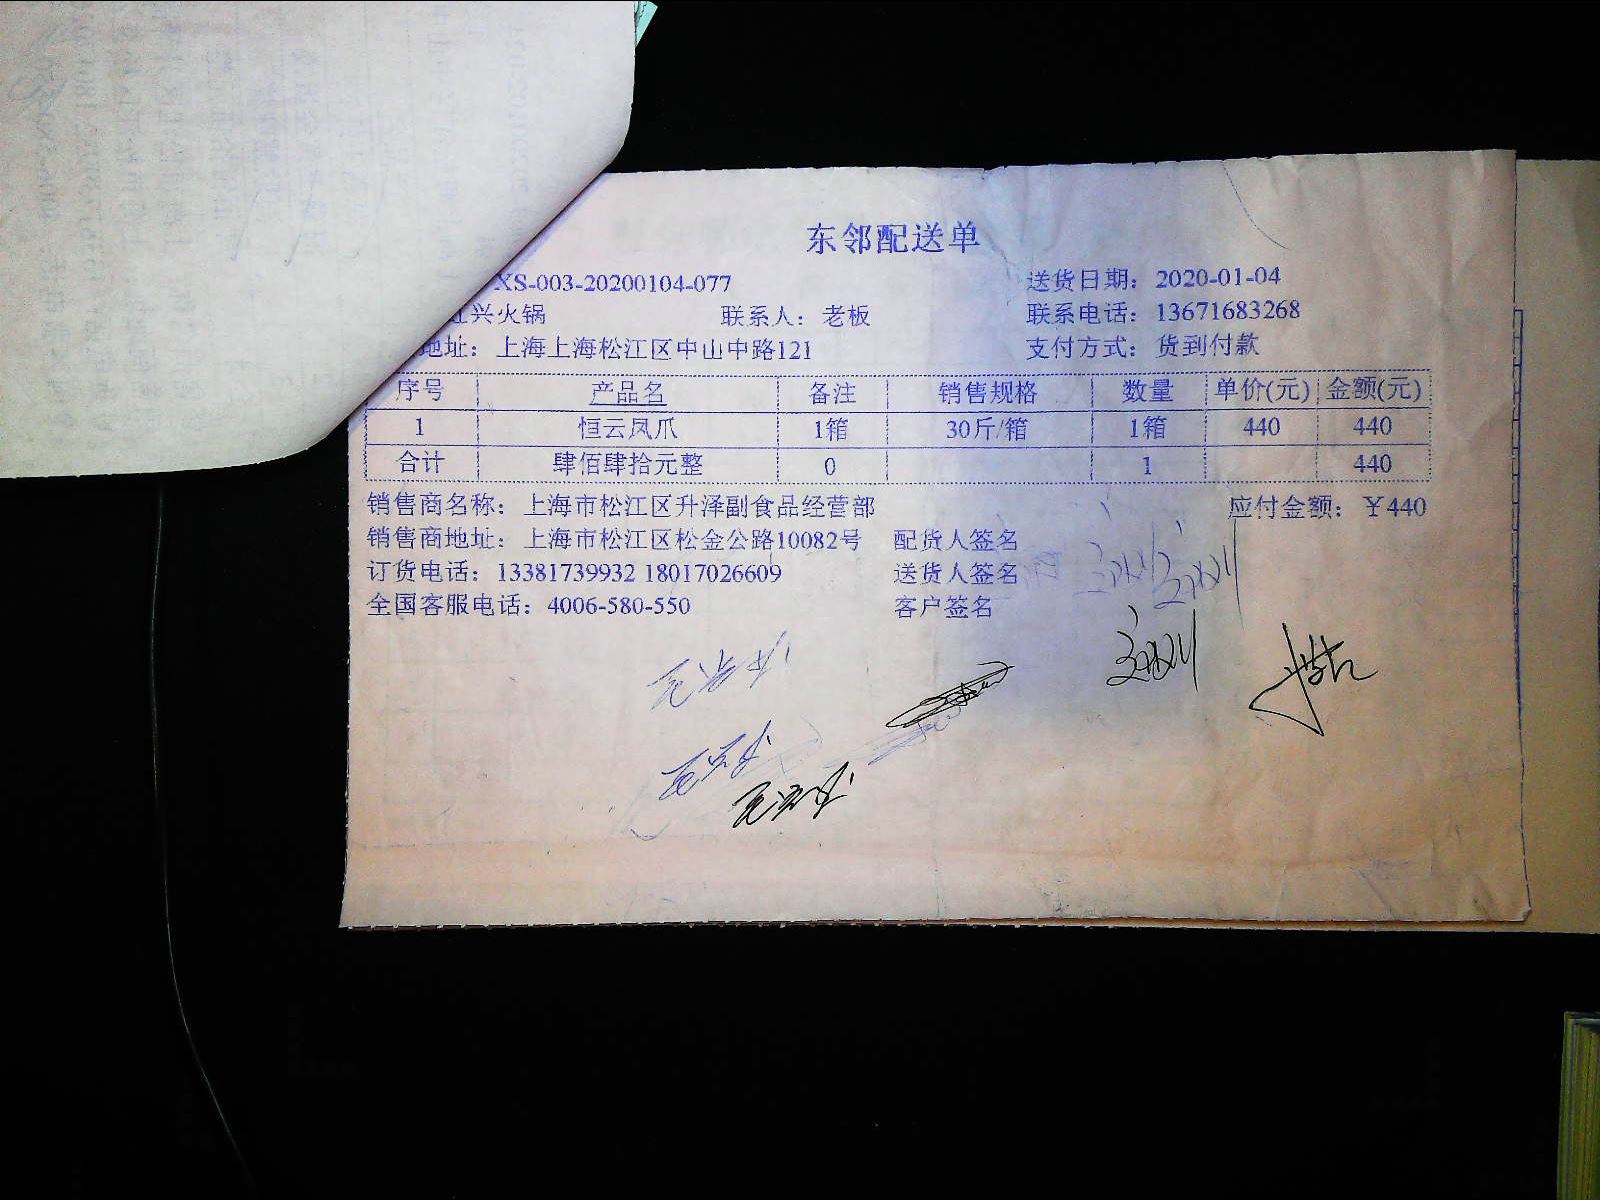 东邻配送单
XS-003-20200104-077 送货日期：2020-01-04
兴火锅 联系人：老板 联系电话：13671683268
地址：上海上海松江区中山中路121 支付方式：货到付款
序号 产品名 备注 销售规格 数量 单价(元) 金额(元)
1 恒云凤爪 1箱 30斤/箱 1箱 440 440
合计 肆佰肆拾元整 0 1 440
销售商名称：上海市松江区升泽副食品经营部 应付金额：￥440
销售商地址：上海市松江区松金公路10082号 配货人签名
订货电话：13381739932 18017026609 送货人签名
全国客服电话：4006-580-550 客户签名